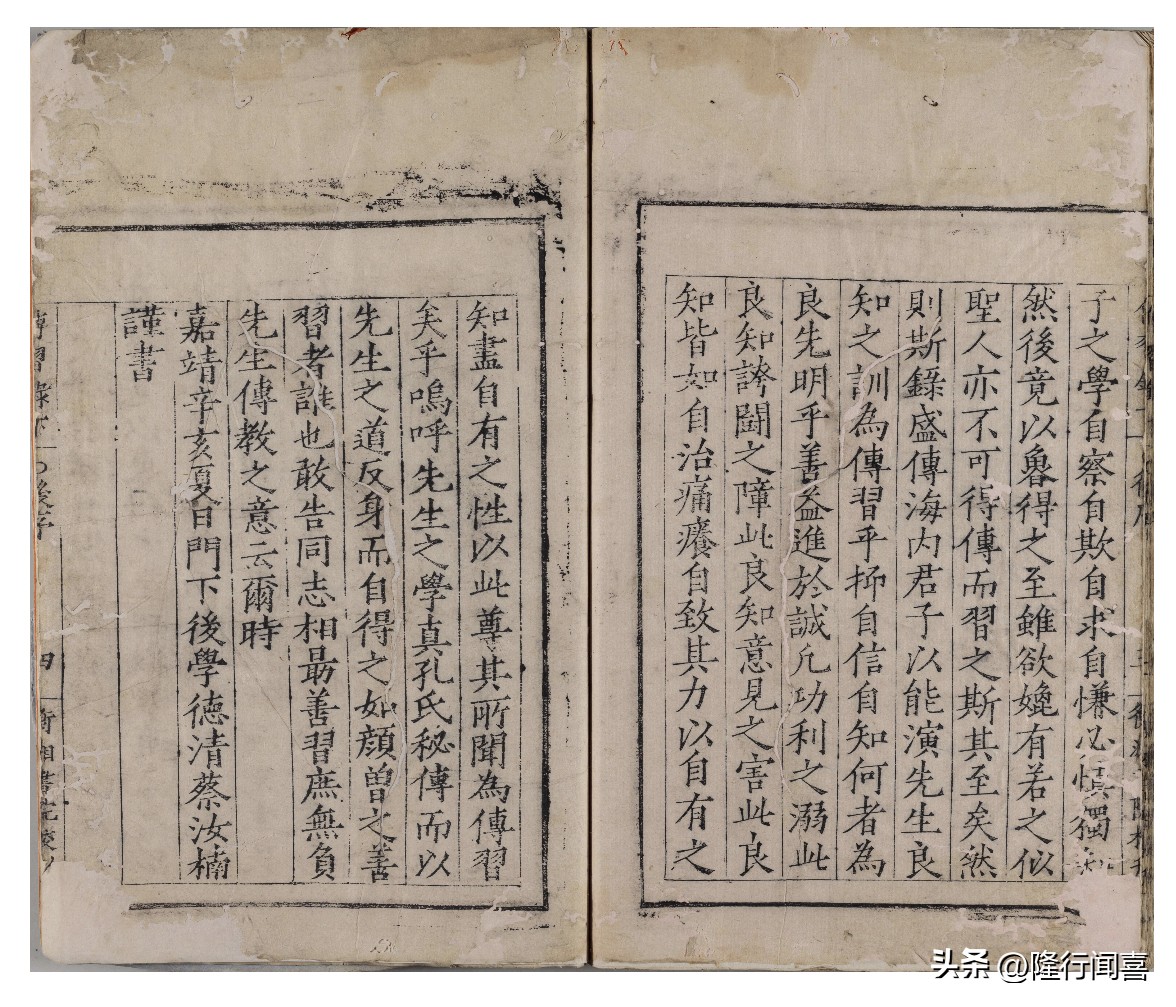 子之學自察自欺自求自慊必慎獨知
然後竟以魯得之至雖欲媲有若之似
聖人亦不可得傳而習之斯其至矣然
則斯錄盛傳海內君子以能演先生良
知之訓為傳習乎抑自信自知何者為
良先明乎善益進於誠凢功利之溺此
良知誇鬭之障此良知意見之害此良
知皆如自治痛癢自致其力以自有之
知盡自有之性以此尊其所聞為傳習
矣乎嗚呼先生之學真孔氏秘傳而以
先生之道反身而自得之如顏曾之善
習者誰也敢告同志相朂善習庶無負
先生傳教之意云爾時
嘉靖辛亥夏日門下後學德清蔡汝楠
謹書
傳習錄下
後序
四
頭条 @隆行闻喜